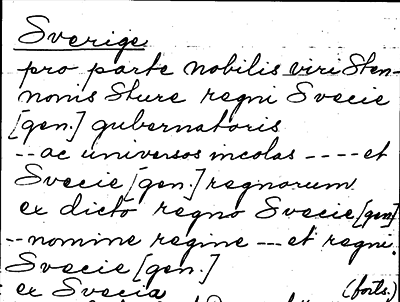 Sverige
pro parte nobilis viri Sten-
nonis Sture regni Svecie
[gen.] gubernatoris
-- ac universos incolas ---- et
Svecie [gen.] regnorum
ex dicto regno Svecie [gen]
-- nomine regine -- et regni
Svecie [gen.]
ex Svecia (forts.)